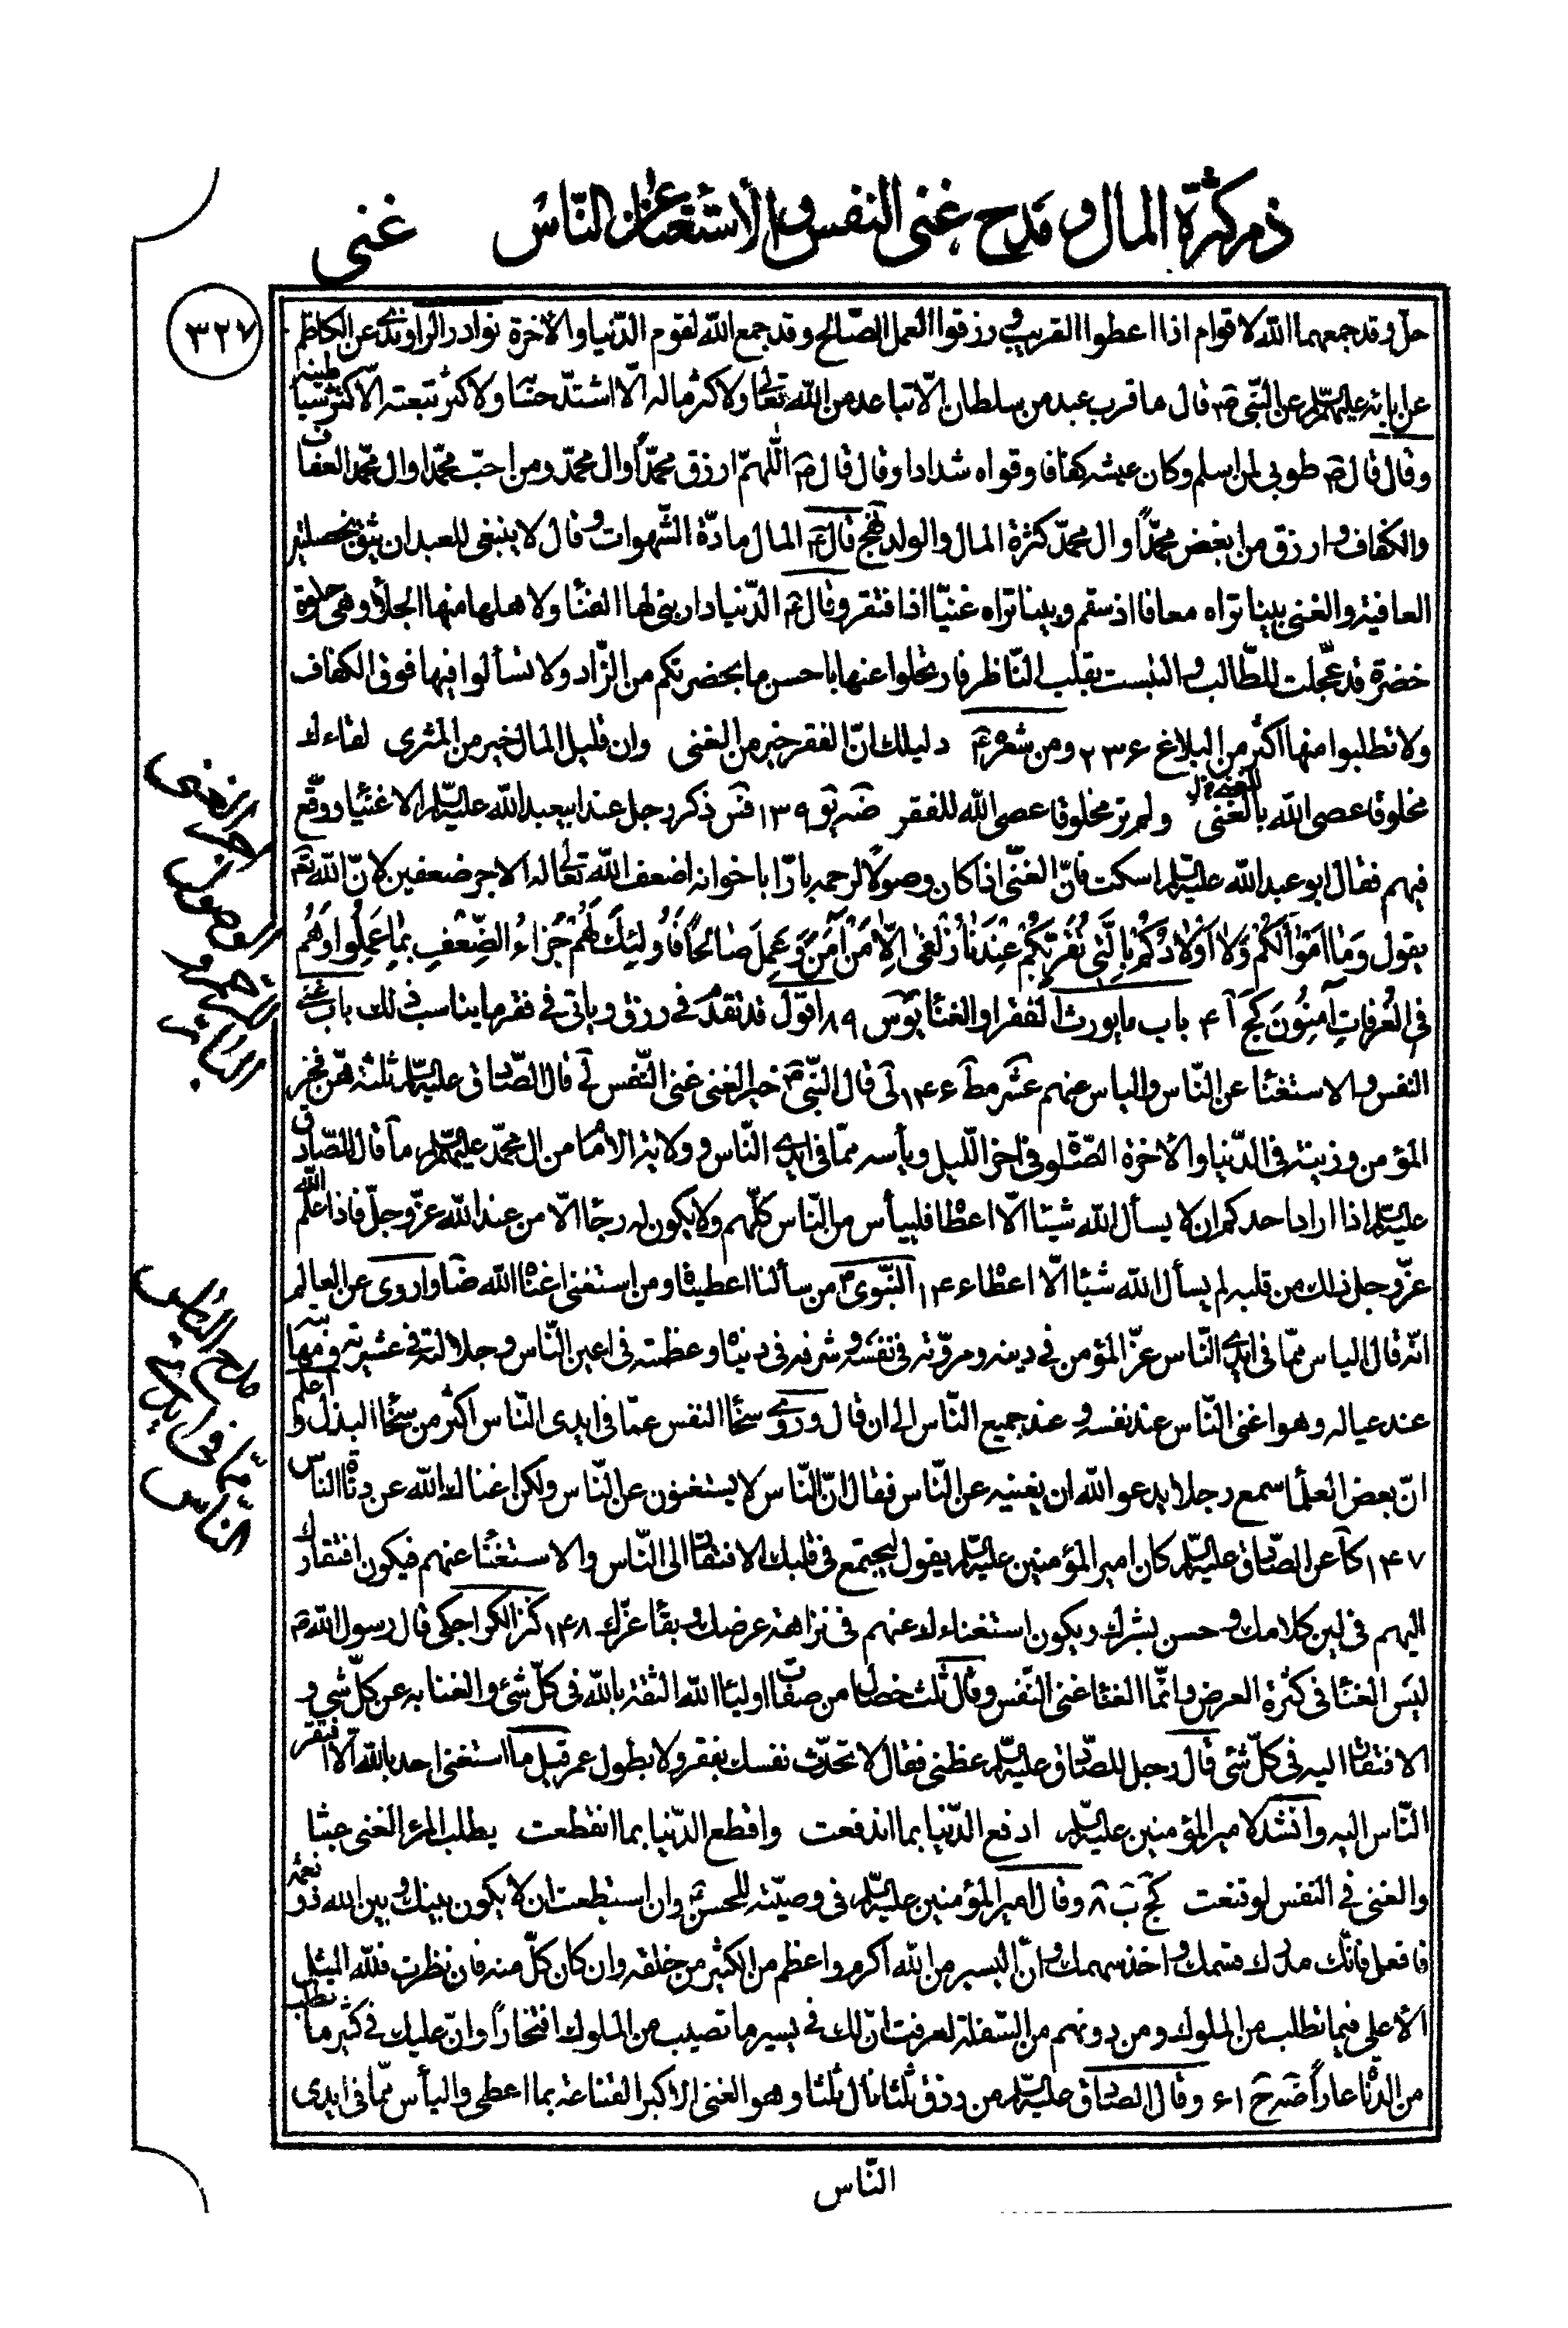 ذم كثرة المال و مدح غنى النفس و الاستغناء عن الناس غنى
٣٢٧
حل و قد جمعهما الله لاقوام اذا اعطوا القريب و رزقوا العمل الصّالح و قد جمع الله لقوم الدّنيا و الاخرة نوادر الراوندي عن الكاظم
عن ابائه عليهم السلم عن النّبى ص قال ما قرب عبد من سلطان الّا تباعد من الله تعالى و لا كثر ماله الّا اشتدّ حسابه و لا كثر تبعته الّا كثر شياطينه
و قال قال ص طوبى لمن اسلم و كان عيشه كفافا و قواه شدادا و قال قال ص اللّهمّ ارزق محمّداً و ال محمّد و من احبّ محمّدا و ال محمّد العفاف
و الكفاف و ارزق من ابغض محمّداً و ال محمّد كثرة المال و الولد نهج قال ع المال مادّة الشّهوات و قال لا ينبغى للعبد ان يثق بخصلتين
العافية و الغنى بينا تراه معافا اذ سقم و بينا تراه غنيّا اذا فتقر و قال ع الدّنيا دار بنى لها الفنا و لاهلها منها الجلا و هى حلوة
خضرة قد عجّلت للطّالب و التبست بقلب النّاظر فارتحلوا عنها باحسن ما بحضرتكم من الزّاد و لا تسألوا فيها فوق الكفاف
و لا تطلبوا منها اكثر من البلاغ ٢٣۶ و من شعره ع دليلك انّ الفقر خير من الغنى و ان قليل المال خير من المثرى لقاءك
مخلوقا عصى الله بالغنى للغنى خ ل و لم تر مخلوقا عصى الله للفقر ضه يو ١٣٩ فس ذكر رجل عند ابيعبد الله عليه السّلم الاغنيا و وقّع
فيهم فقال ابو عبد الله عليه السّلم اسكت فانّ الغنّى اذا كان وصولاً لرحمه بارّا باخوانه اضعف الله تعالى له الاجر ضعفين لانّ الله تع
يقول وَ مٰا اَمْوٰالُكُمْ وَ لٰا اَوْلٰادُكُمْ بِالَّتى تُقَرِّبُكُمْ عِنْدَنٰا زُلْفى اِلّٰا مَنْ آمَنَ وَ عَمِلَ صٰالِحًا فَاُولٰئِكَ لَهُمْ جَزٰاءُ الضِّعْفِ بِمٰا عَمِلُوا وَ هُمْ
فى الْغُرُفٰاتِ آمِنُونَ كج آ ۴ باب ما يورث الفقر او الغنا يو س ٨٩ اقول قد تقدّم فى رزق و ياتى فى فقر ما يناسب ذلك باب غنى
النفس و الاستغنا عن النّاس و الياس عنهم عشر مط ١۴۶ لى قال النّبى ص خير الغنى غنى النّفس لى قال الصّادق عليه السّلم ثلثة هنّ فخر
المؤمن و زينته فى الدّنيا و الاخرة الصّلوة فى اخر اللّيل و يأسه ممّا فى ايدى النّاس و ولاية الامام من ال محمّد عليهم السّلم ما قال الصّادق
عليه السّلم اذا اراد احدكم ان لا يسأل الله شيئا الّا اعطاه فلييأس من النّاس كلّهم و لا يكون له رجا الّا من عند الله عزّ و جلّ فاذا علم الله
عزّ و جل ذلك من قلبه لم يسأل الله شيئا الّا اعطاه ١۴۶ النّبوى ص من سألنا اعطيناه و من استغنى اغناه الله ضا و اروى عن العالم
انّه قال الياس ممّا فى ايدى النّاس عزّ المؤمن فى دينه و مروّته فى نفسه و شرفه فى دنياه و عظمته فى اعين النّاس و جلالته فى عشيرته و مهابته
عند عياله و هو اغنى النّاس عند نفسه و عند جميع النّاس الى ان قال و روى سخا النفس عمّا فى ايدى النّاس اكثر من سخا البذل و اعلم
انّ بعض العلما سمع رجلا يدعو الله ان يغنيه عن النّاس فقال انّ النّاس لا يستغنون عن النّاس و لكن اغناك الله عن دنآة الناس
١۴٧ كا عن الصّادق عليه السّلم كان امير المؤمنين عليه السّلم يقول ليجتمع فى قلبك الافتقار الى النّاس و الاستغنا عنهم فيكون افتقارك
اليهم فى لين كلامك و حسن بشرك و يكون استغناءك عنهم فى نزاهة عرضك و بقا عزّك ١۴٨ كنز الكراجكى قال رسول الله ص
ليس الغنا فى كثرة العرض و انّما الغنا غنى النّفس و قال ثلث خصال من صفات اوليا الله الثقة بالله فى كلّ شىء و الغنا به عن كلّ شىء و
الافتقار اليه فى كلّ شىء قال رجل للصّادق عليه السّلم عظنى فقال لا تحدّث نفسك بفقر و لا بطول عمر قيل ما استغنى احد بالله الّا افتقر
النّاس اليه و انشد لامير المؤمنين عليه السّلم ادفع الدّنيا بما اندفعت و اقطع الدّنيا بما انقطعت يطلب المرء الغنى عبثا
و الغنى فى النفس لو قنعت كج ب ٨ و قال امير المؤمنين عليه السّلم فى وصيّته للحسن ع و ان استطعت ان لا يكون بينك و بين الله ذو نعمة
فافعل فانّك مدرك قسمك و اخذ سهمك و انّ اليسير من الله اكرم و اعظم من الكثير من خلقه و ان كان كلّ منه فان نظرت فلله المثل
الاعلى فيما تطلب من الملوك و من دونهم من السّفلة لعرفت انّ لك فى يسير ما تصيب من الملوك افتخاراً و انّ عليك فى كثير ما تطلب
من الدّناة عاراً ضه ح ۶١ و قال الصّادق عليه السّلم من رزق ثلثا نال ثلثا و هو الغنى الاكبر القناعة بما اعطى و اليأس ممّا فى ايدى
النّاس
الغنى
الوصول
الرحم و
البار
مدح الياس
ممّا فى ايدى
الناس